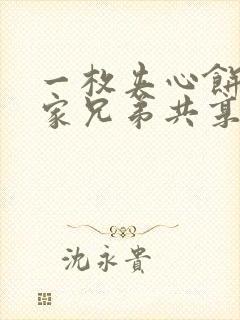 一枚夹心餅
家兄弟共享
沈永貴